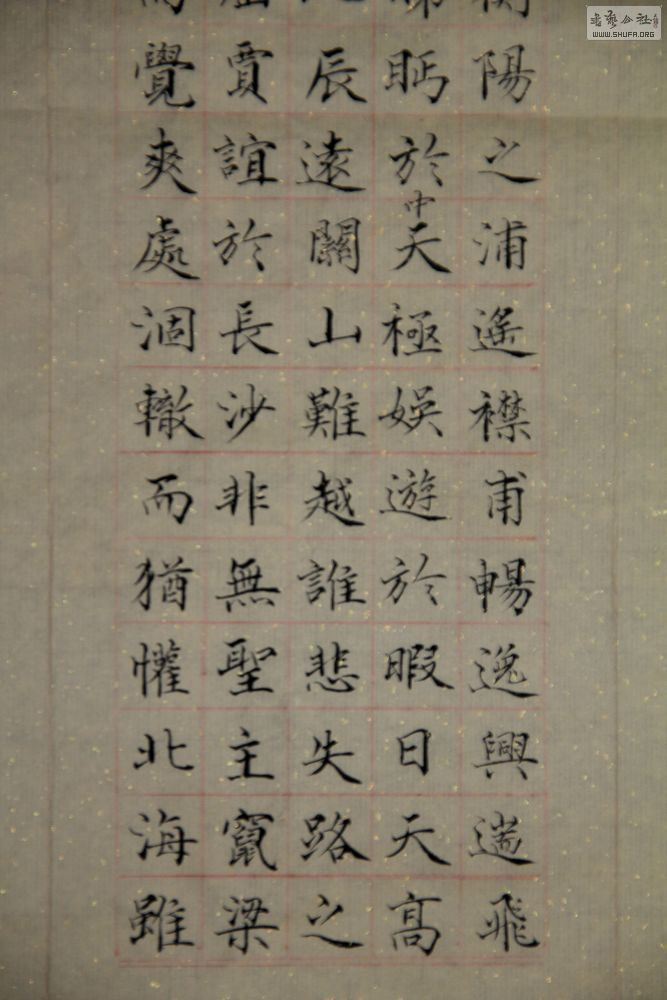 衡陽之浦遙襟甫暢逸興遄飛
睇眄於中天極娛遊於暇日天高
辰遠關山難越誰悲失路之
屈賈誼於長沙非無聖主竄梁
而覺爽處涸轍而猶懽北海雖
書藝公社
WWW.SHUFA.ORG